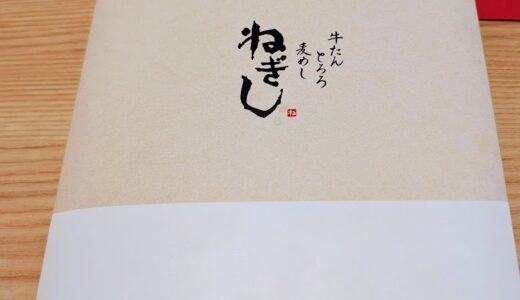 牛たん
とろろ
麦めし
ねぎし
ね